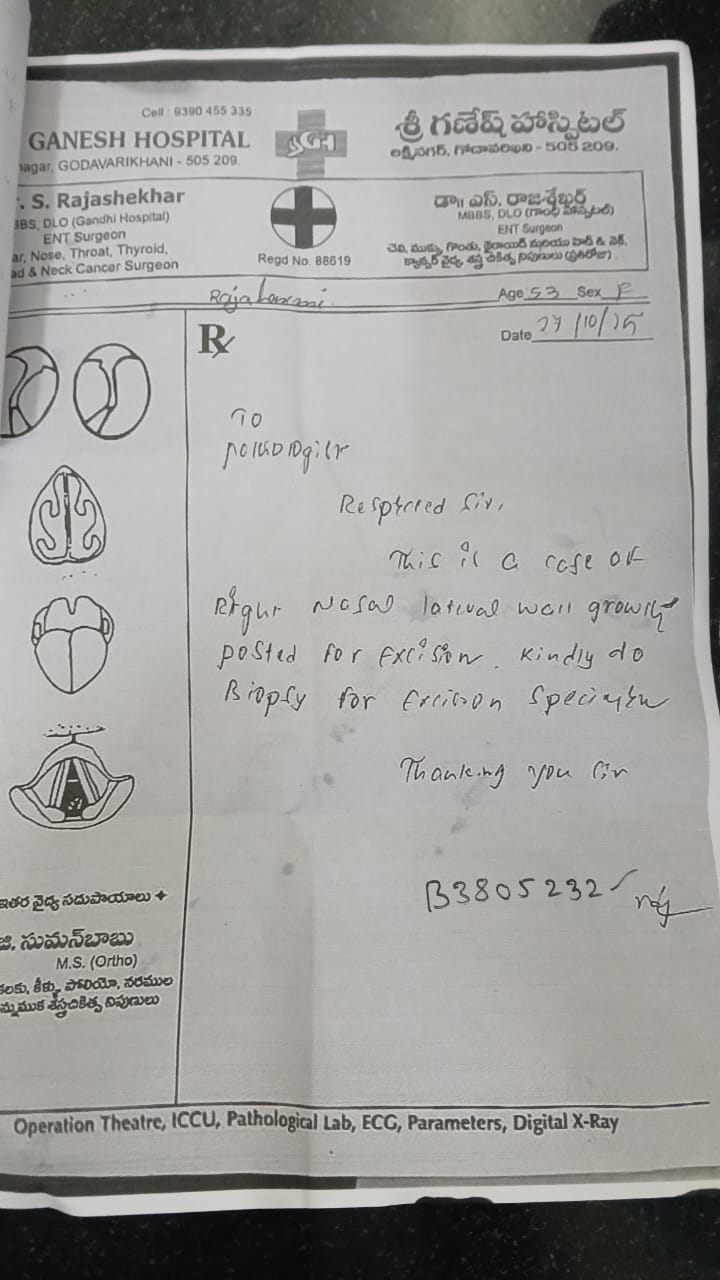 Cell : 9390 455 335
GANESH HOSPITAL
nagar, GODAVARIKHANI - 505 209.
SGH
శ్రీ గణేష్ హాస్పిటల్
లక్ష్మీనగర్, గోదావరిఖని - 505 209.
. S. Rajashekhar
BBS, DLO (Gandhi Hospital)
ENT Surgeon
ar, Nose, Throat, Thyroid,
ad & Neck Cancer Surgeon
Regd No. 88619
డా॥ ఎస్. రాజశేఖర్
MBBS, DLO (గాంధీ హాస్పటల్)
ENT Surgeon
చెవి, ముక్కు, గొంతు, థైరాయిడ్ మరియు హెడ్ & నెక్,
క్యాన్సర్ వైద్య శస్త్ర చికిత్స నిపుణులు
Rajalaxmi
Age 53 Sex F
Date 27/10/25
Rx
To
pathologist
Respected Sir,
This is a case of
Right Nasal lateral wall growth
posted for Excision. Kindly do
Biopsy for Excision Specimen
Thanking you Sir
B3805232
ఇతర వైద్య సదుపాయాలు
జి. సుమన్‌బాబు
M.S. (Ortho)
కీళ్ళు, పోలియో, నరముల
శస్త్రచికిత్స నిపుణులు
Operation Theatre, ICCU, Pathological Lab, ECG, Parameters, Digital X-Ray